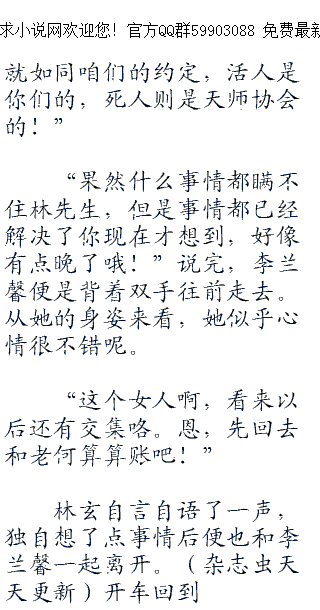 求小说网欢迎您！官方QQ群59903088 免费最新
就如同咱们的约定，活人是
你们的，死人则是天师协会
的！”
“果然什么事情都瞒不
住林先生，但是事情都已经
解决了你现在才想到，好像
有点晚了哦！”说完，李兰
馨便是背着双手往前走去。
从她的身姿来看，她似乎心
情很不错呢。
“这个女人啊，看来以
后还有交集咯。恩，先回去
和老何算算账吧！”
林玄自言自语了一声，
独自想了点事情后便也和李
兰馨一起离开。（杂志虫天
天更新）开车回到